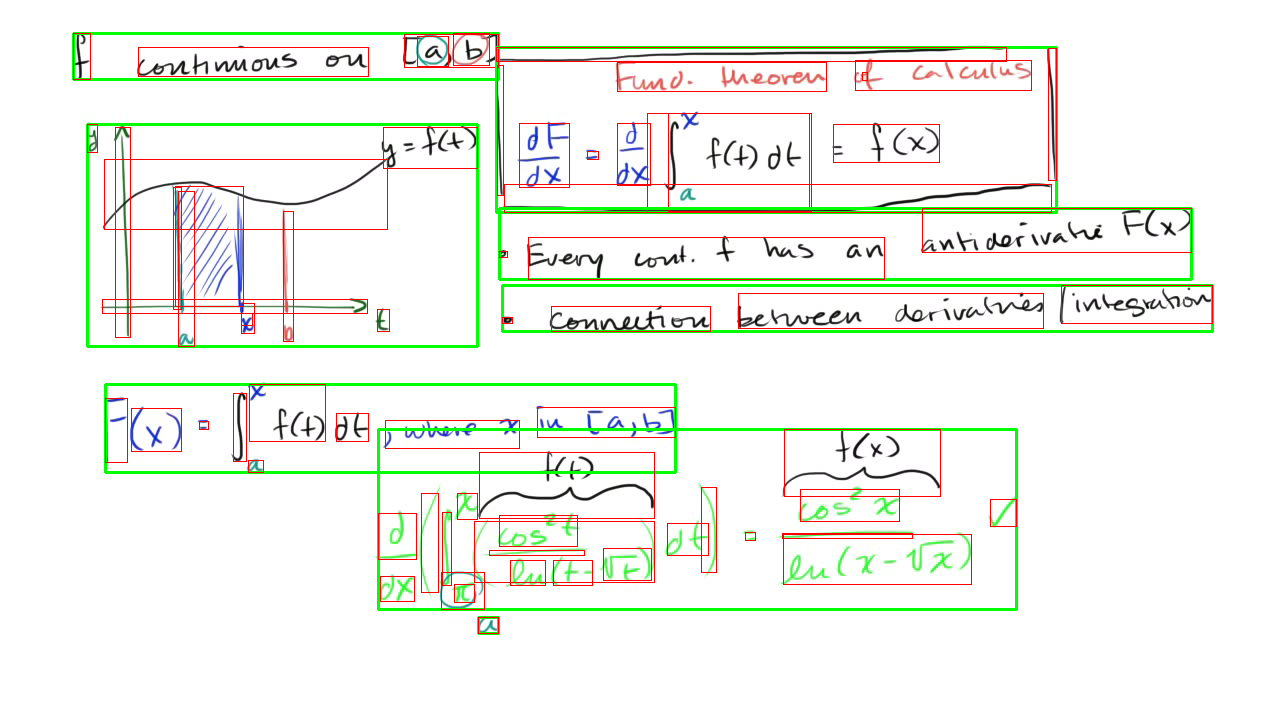 f continuous on [a, b]
Fund. theorem of calculus
dF/dx = d/dx ∫_a^x f(t) dt = f(x)
y
y = f(t)
a x b t
• Every cont. f has an antiderivative F(x)
• connection between derivatives / integration
F(x) = ∫_a^x f(t) dt, where x in [a,b]
f(t) f(x)
d/dx (∫_π^x (cos²t / ln(t-√t)) dt) = cos²x / ln(x-√x) ✓
a